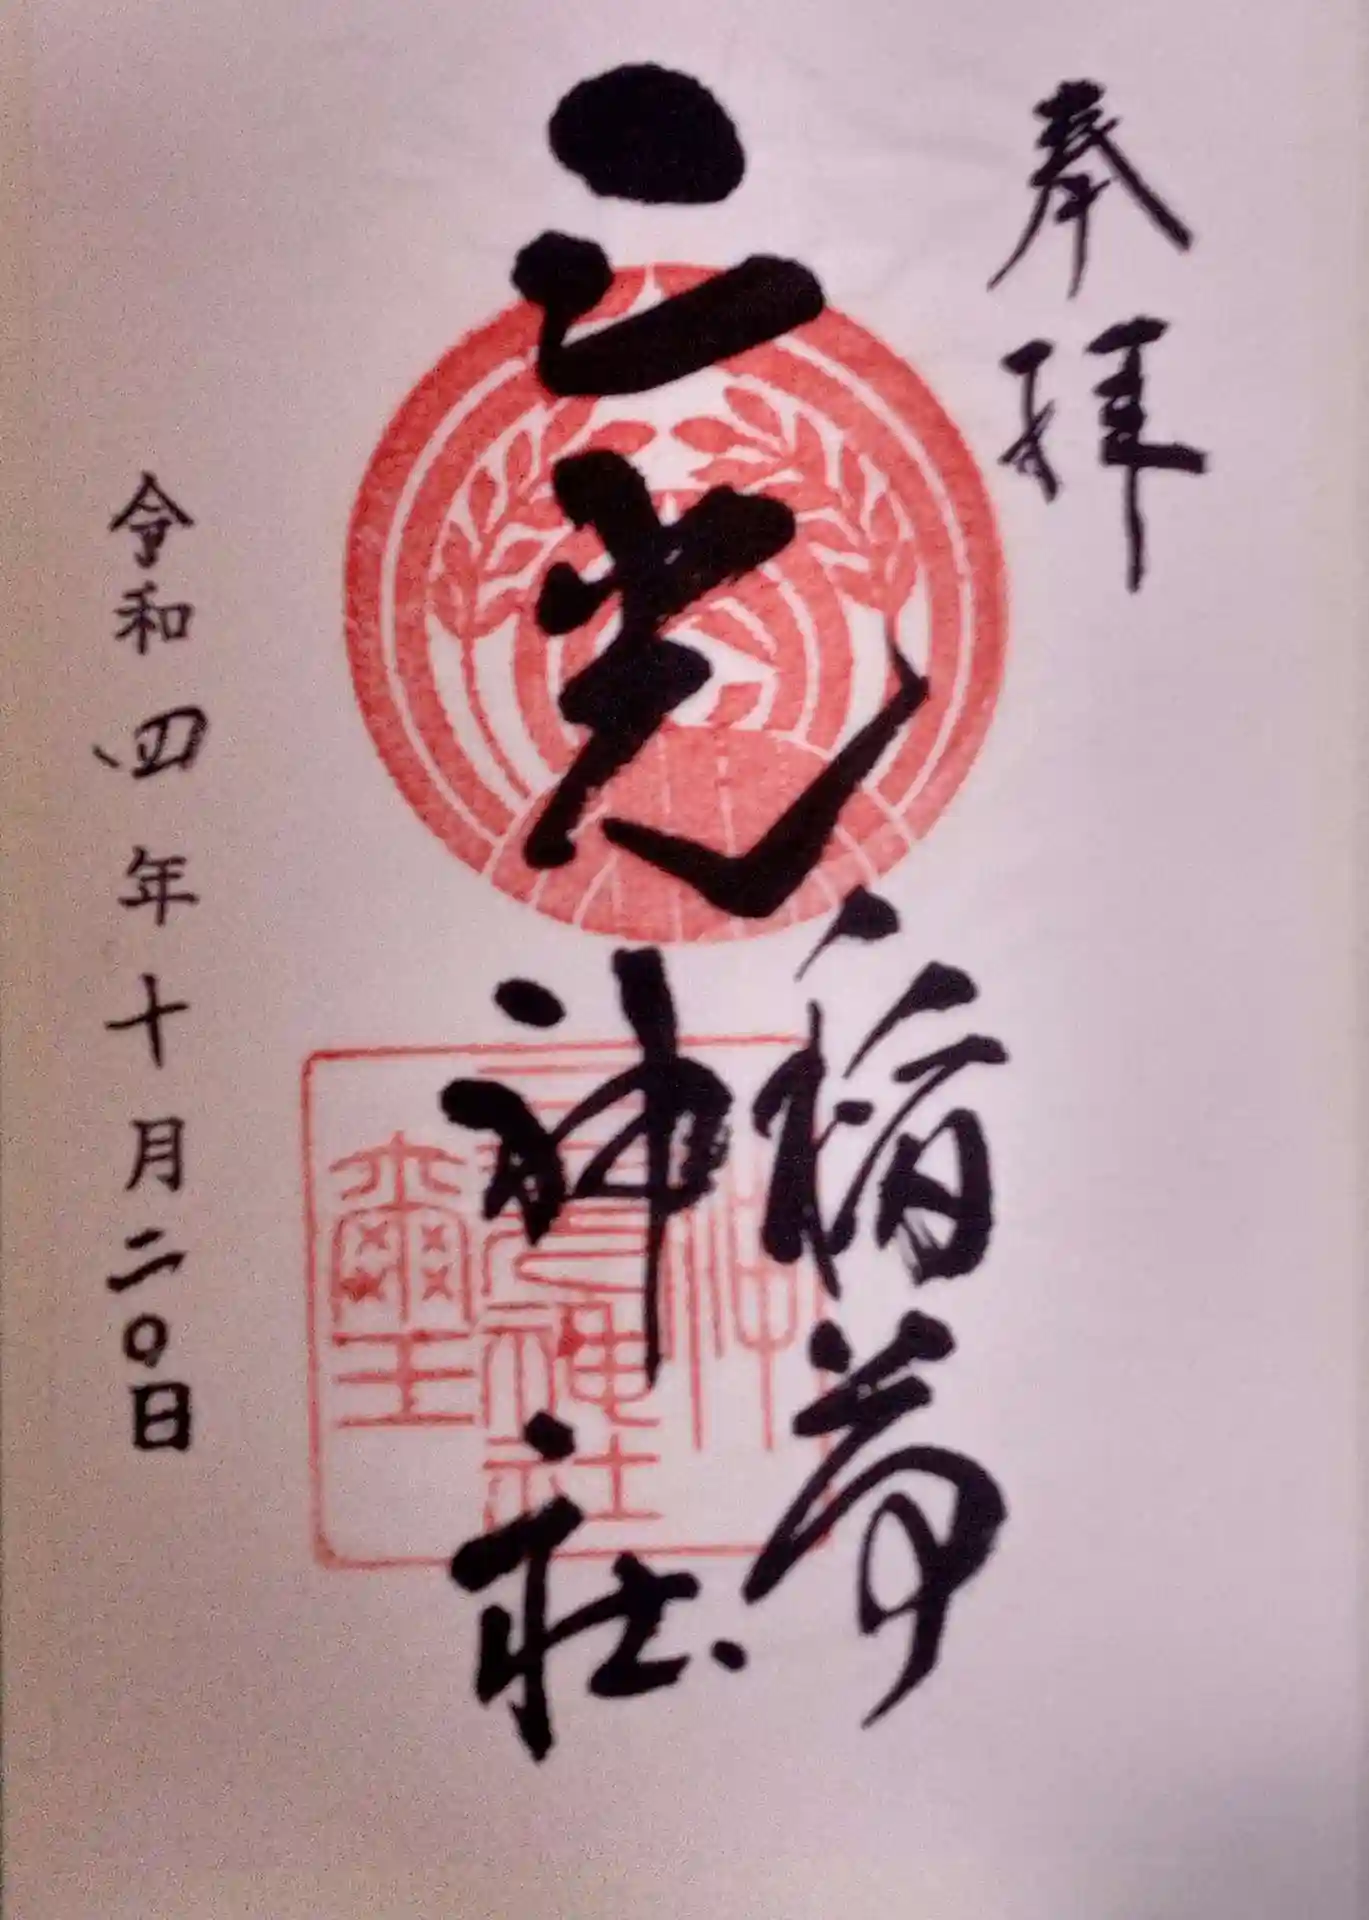 奉拝
三光
稲荷
神社
令和四年十月二〇日